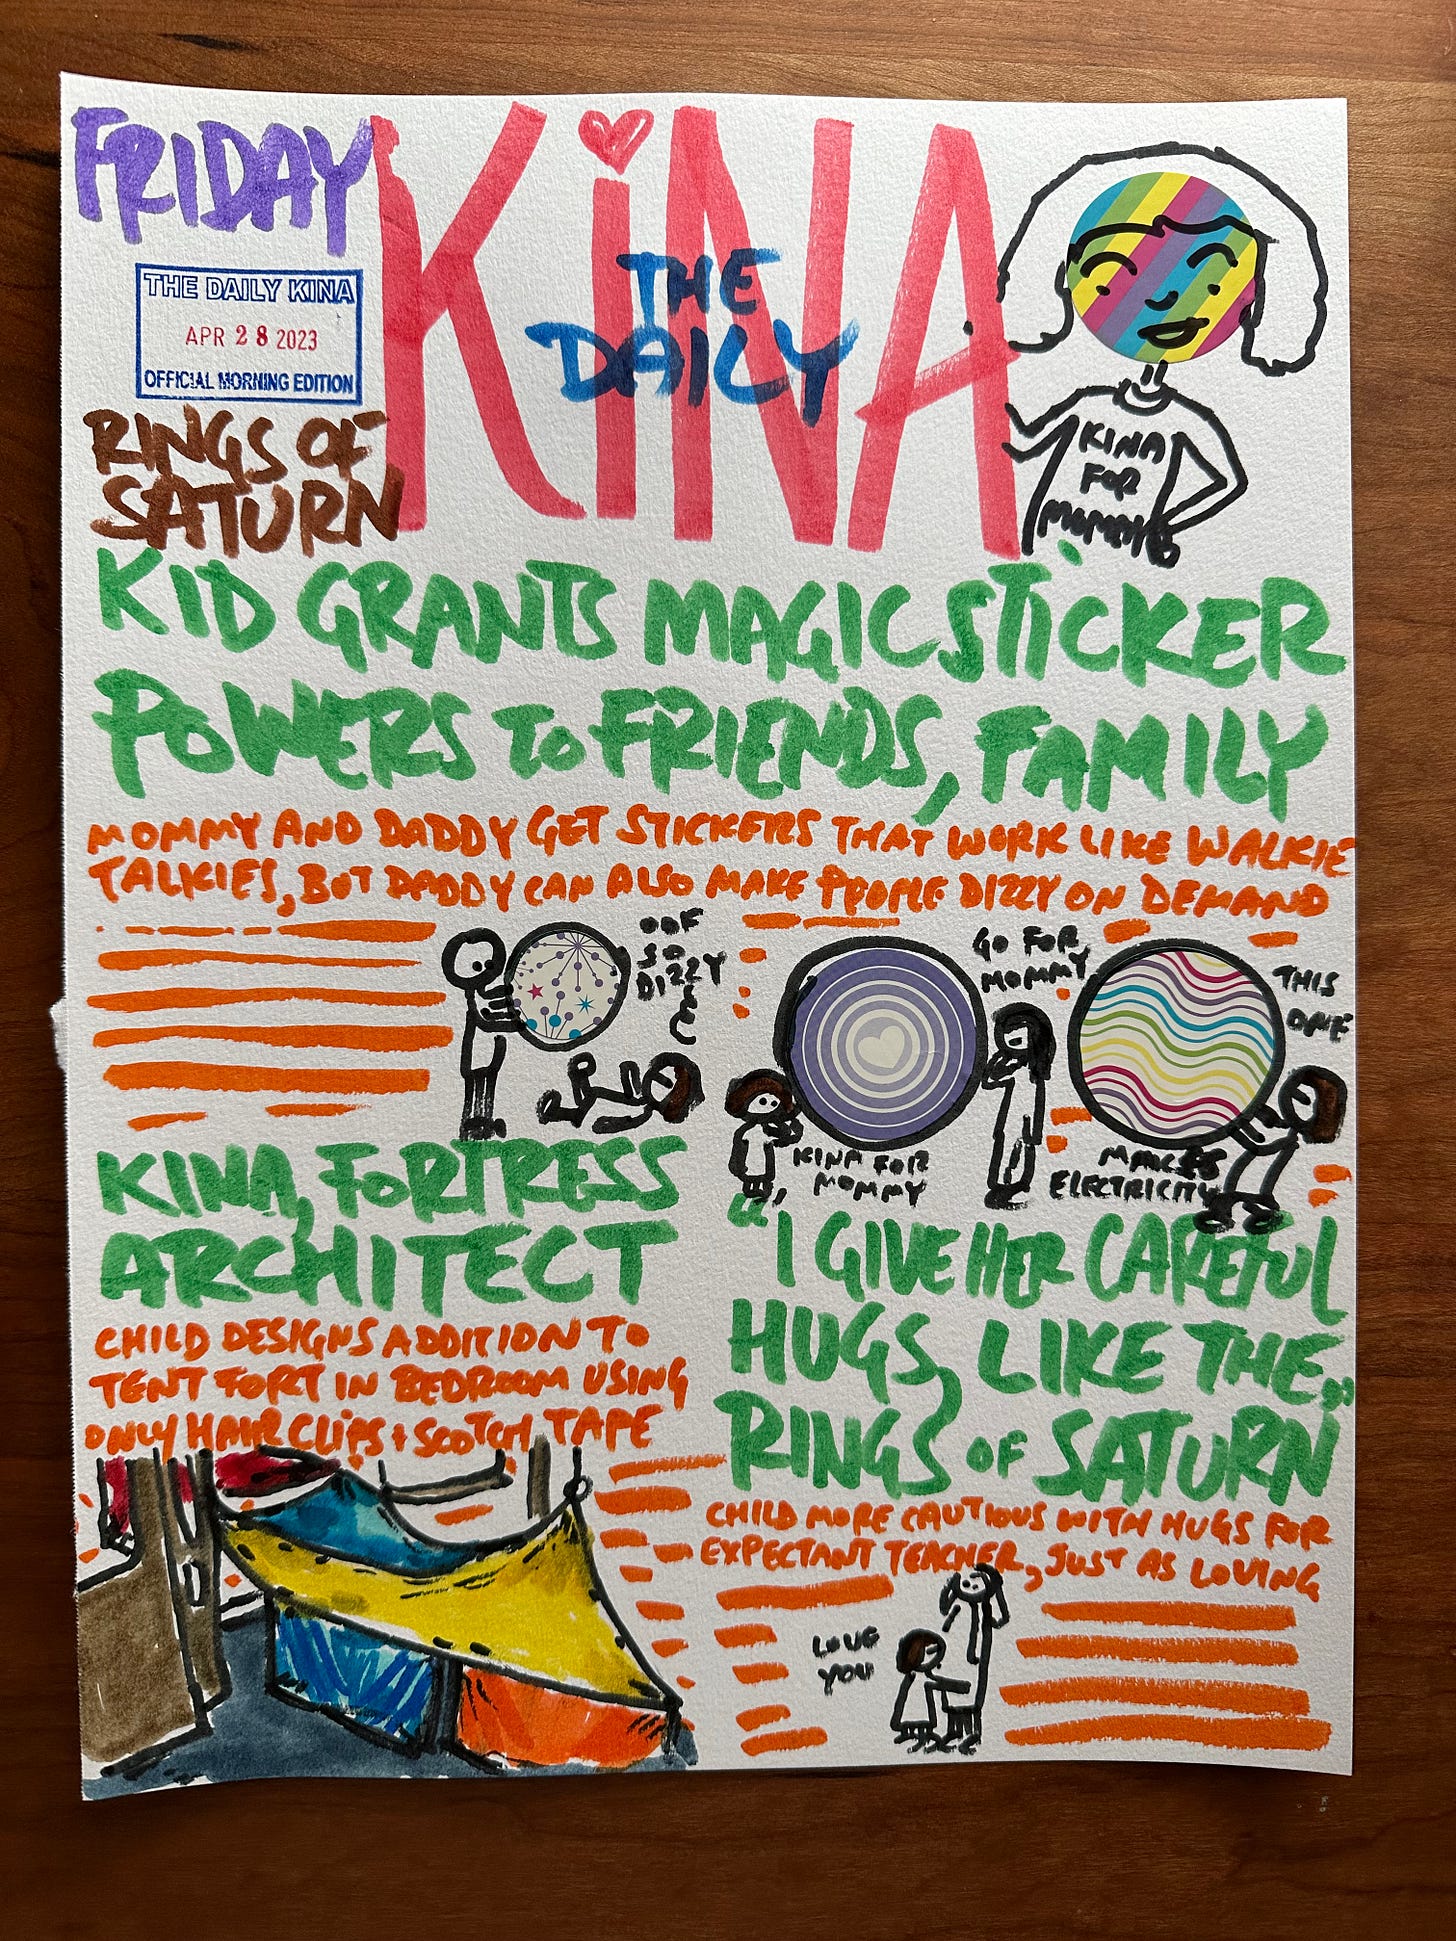 FRIDAY
KiNA
THE
DAILY
THE DAILY KINA
APR 28 2023
OFFICIAL MORNING EDITION
RINGS OF
SATURN
KINA
FOR
MOMMY
KID GRANTS MAGIC STiCKER
POWERS To FRIENDS, FAMILY
MOMMY AND DADDY GET STICKERS THAT WORK LIKE WALKIE
TALKIES, BUT DADDY CAN ALSO MAKE PEOPLE DIZZY ON DEMAND
OOF
SO
DIZZY
GO FOR
MOMMY
KINA FOR
MOMMY
THIS
ONE
MAKES
ELECTRICITY
KINA, FORTRESS
ARCHITECT
CHILD DESIGNS ADDITION TO
TENT FORT IN BEDROOM USING
ONLY HAIR CLIPS + SCOTCH TAPE
"I GIVE HER CAREFUL
HUGS, LIKE THE
RINGS OF SATURN"
CHILD MORE CAUTIOUS WITH HUGS FOR
EXPECTANT TEACHER, JUST AS LOVING
LOVE
YOU